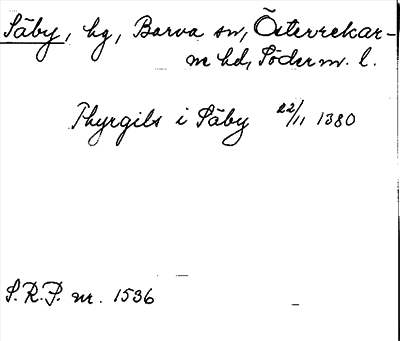 Säby, hg, Barva sn, Österrekar-
ne hd, Söderm. l.
Thyrgils i Säby 22/11 1380
S.R.P. nr. 1536